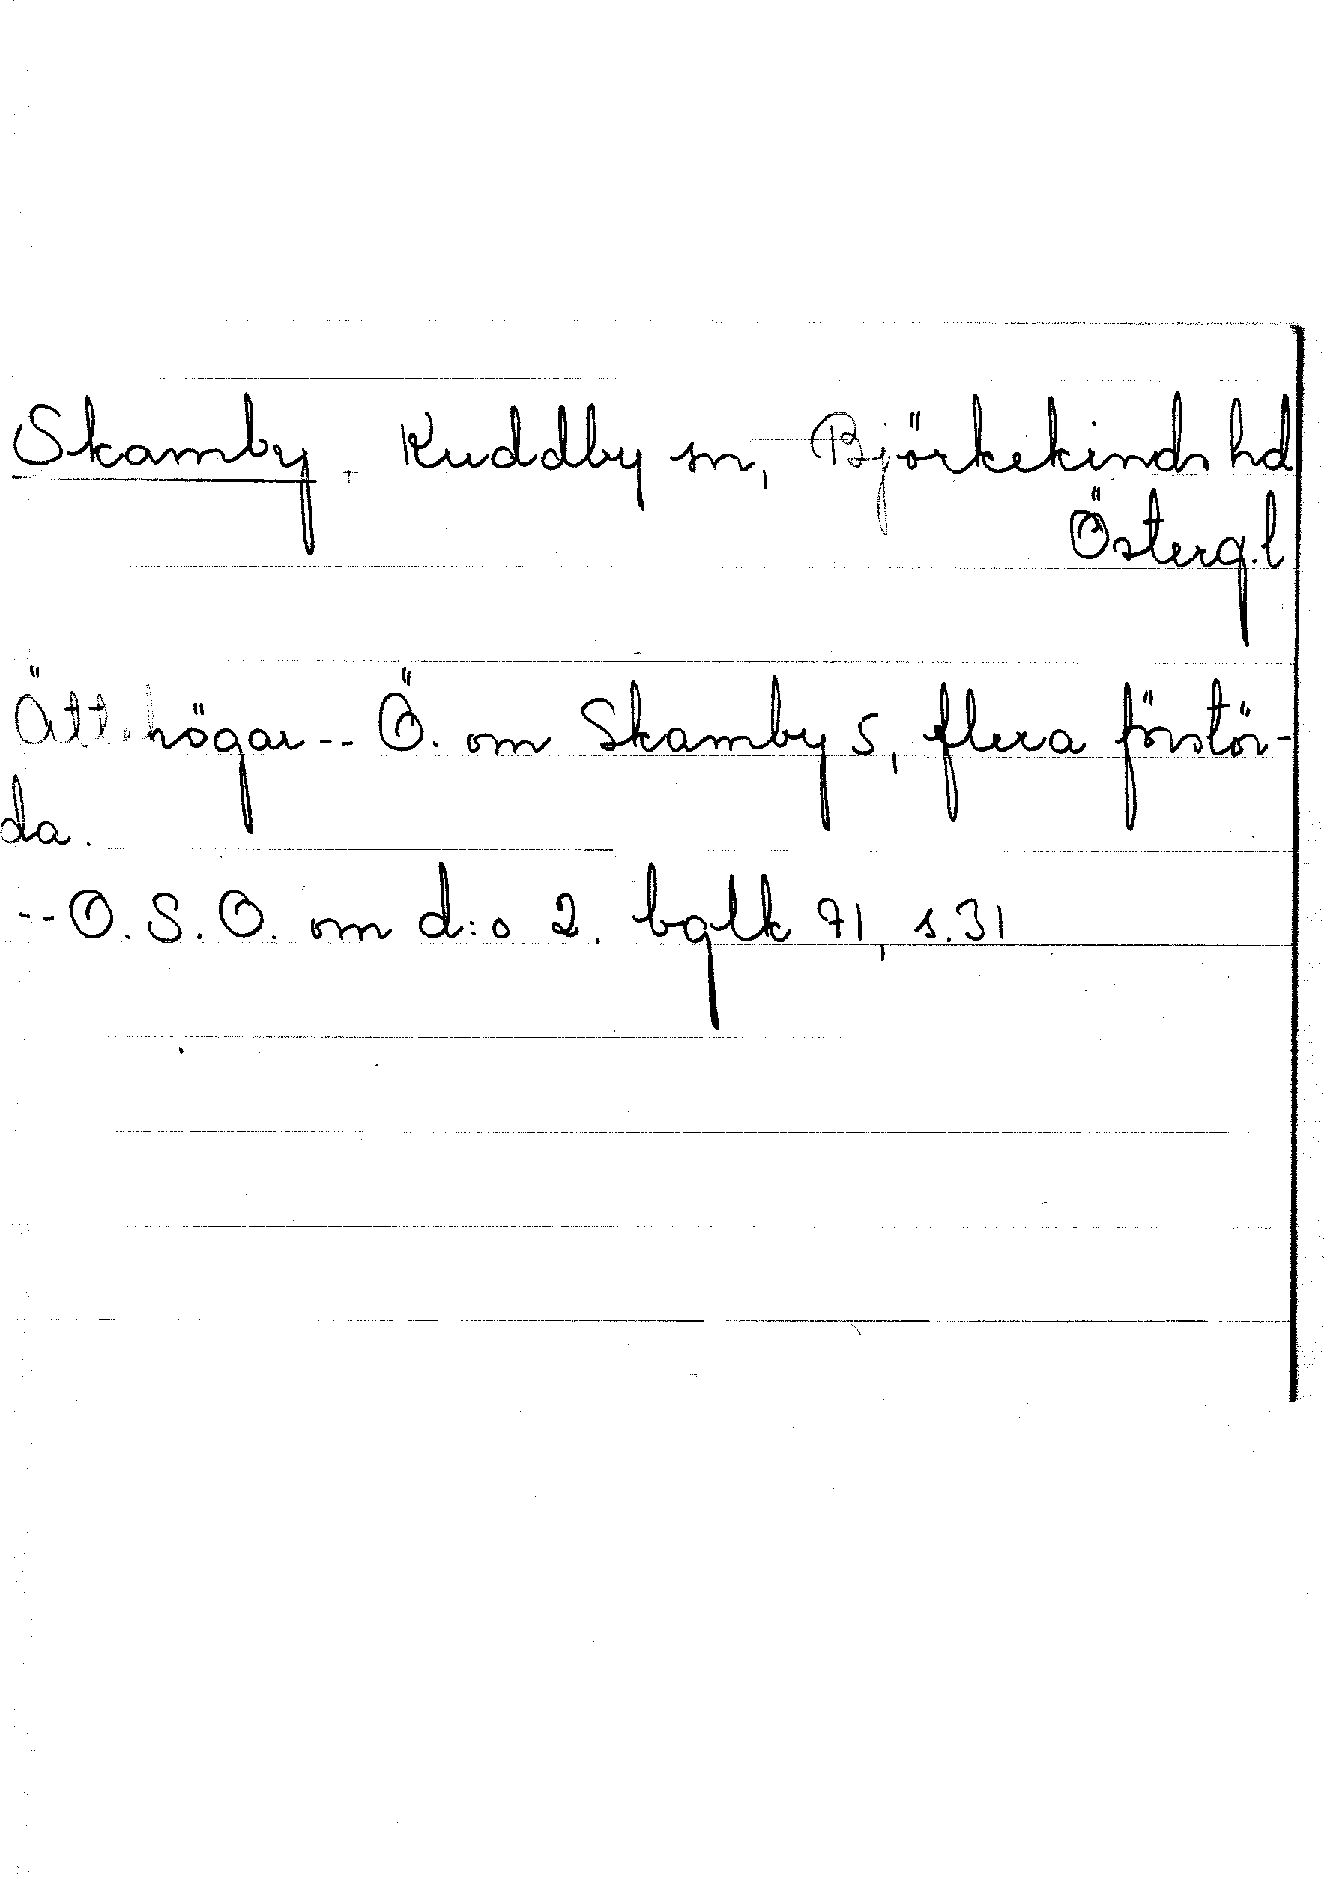 Skamby. Kuddby sn, Björkekinds hd
Österg.l
Ättehögar -- Ö. om Skamby 5, flera förstör-
da.
-- O.S.O. om d:o 2. bglk 71, s.31